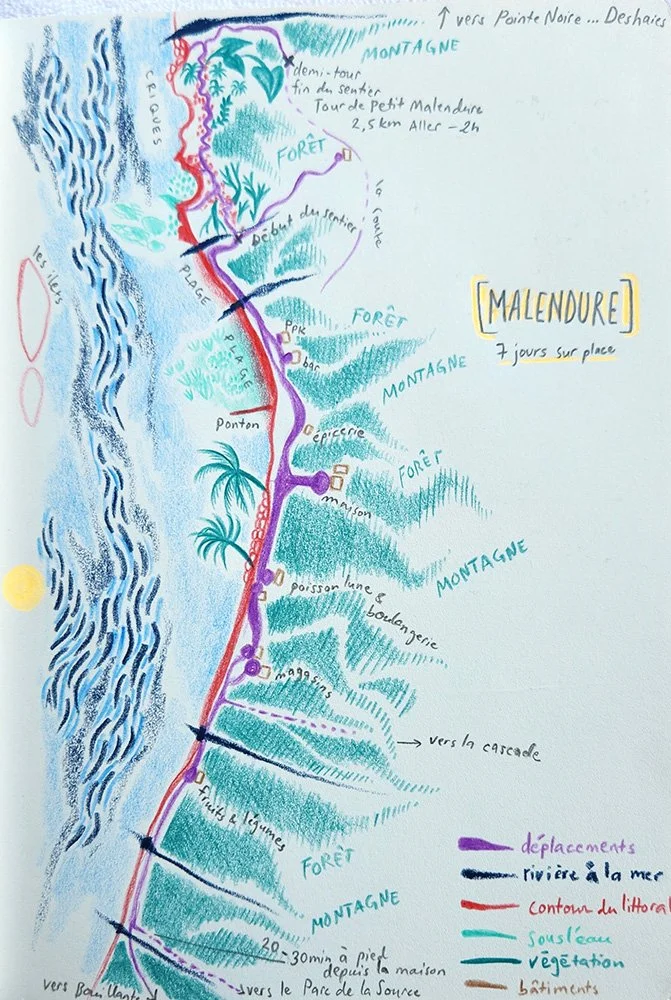 ↑ vers Pointe Noire ... Deshaies
MONTAGNE
demi-tour
fin du sentier
Tour de Petit Malendure
2,5 km Aller - 2h
CRIQUES
FORÊT
la route
Début du sentier
les îlets
PLAGE
[MALENDURE]
7 jours sur place
PPK
FORÊT
bar
PLAGE
MONTAGNE
Ponton
épicerie
FORÊT
maison
MONTAGNE
poisson lune &
boulangerie
magasins
→ vers la cascade
fruits & légumes
FORÊT
MONTAGNE
déplacements
rivière à la mer
contour du littoral
sous l'eau
végétation
bâtiments
20-30min à pied
depuis la maison
vers le Parc de la Source
vers Bouillante ↓